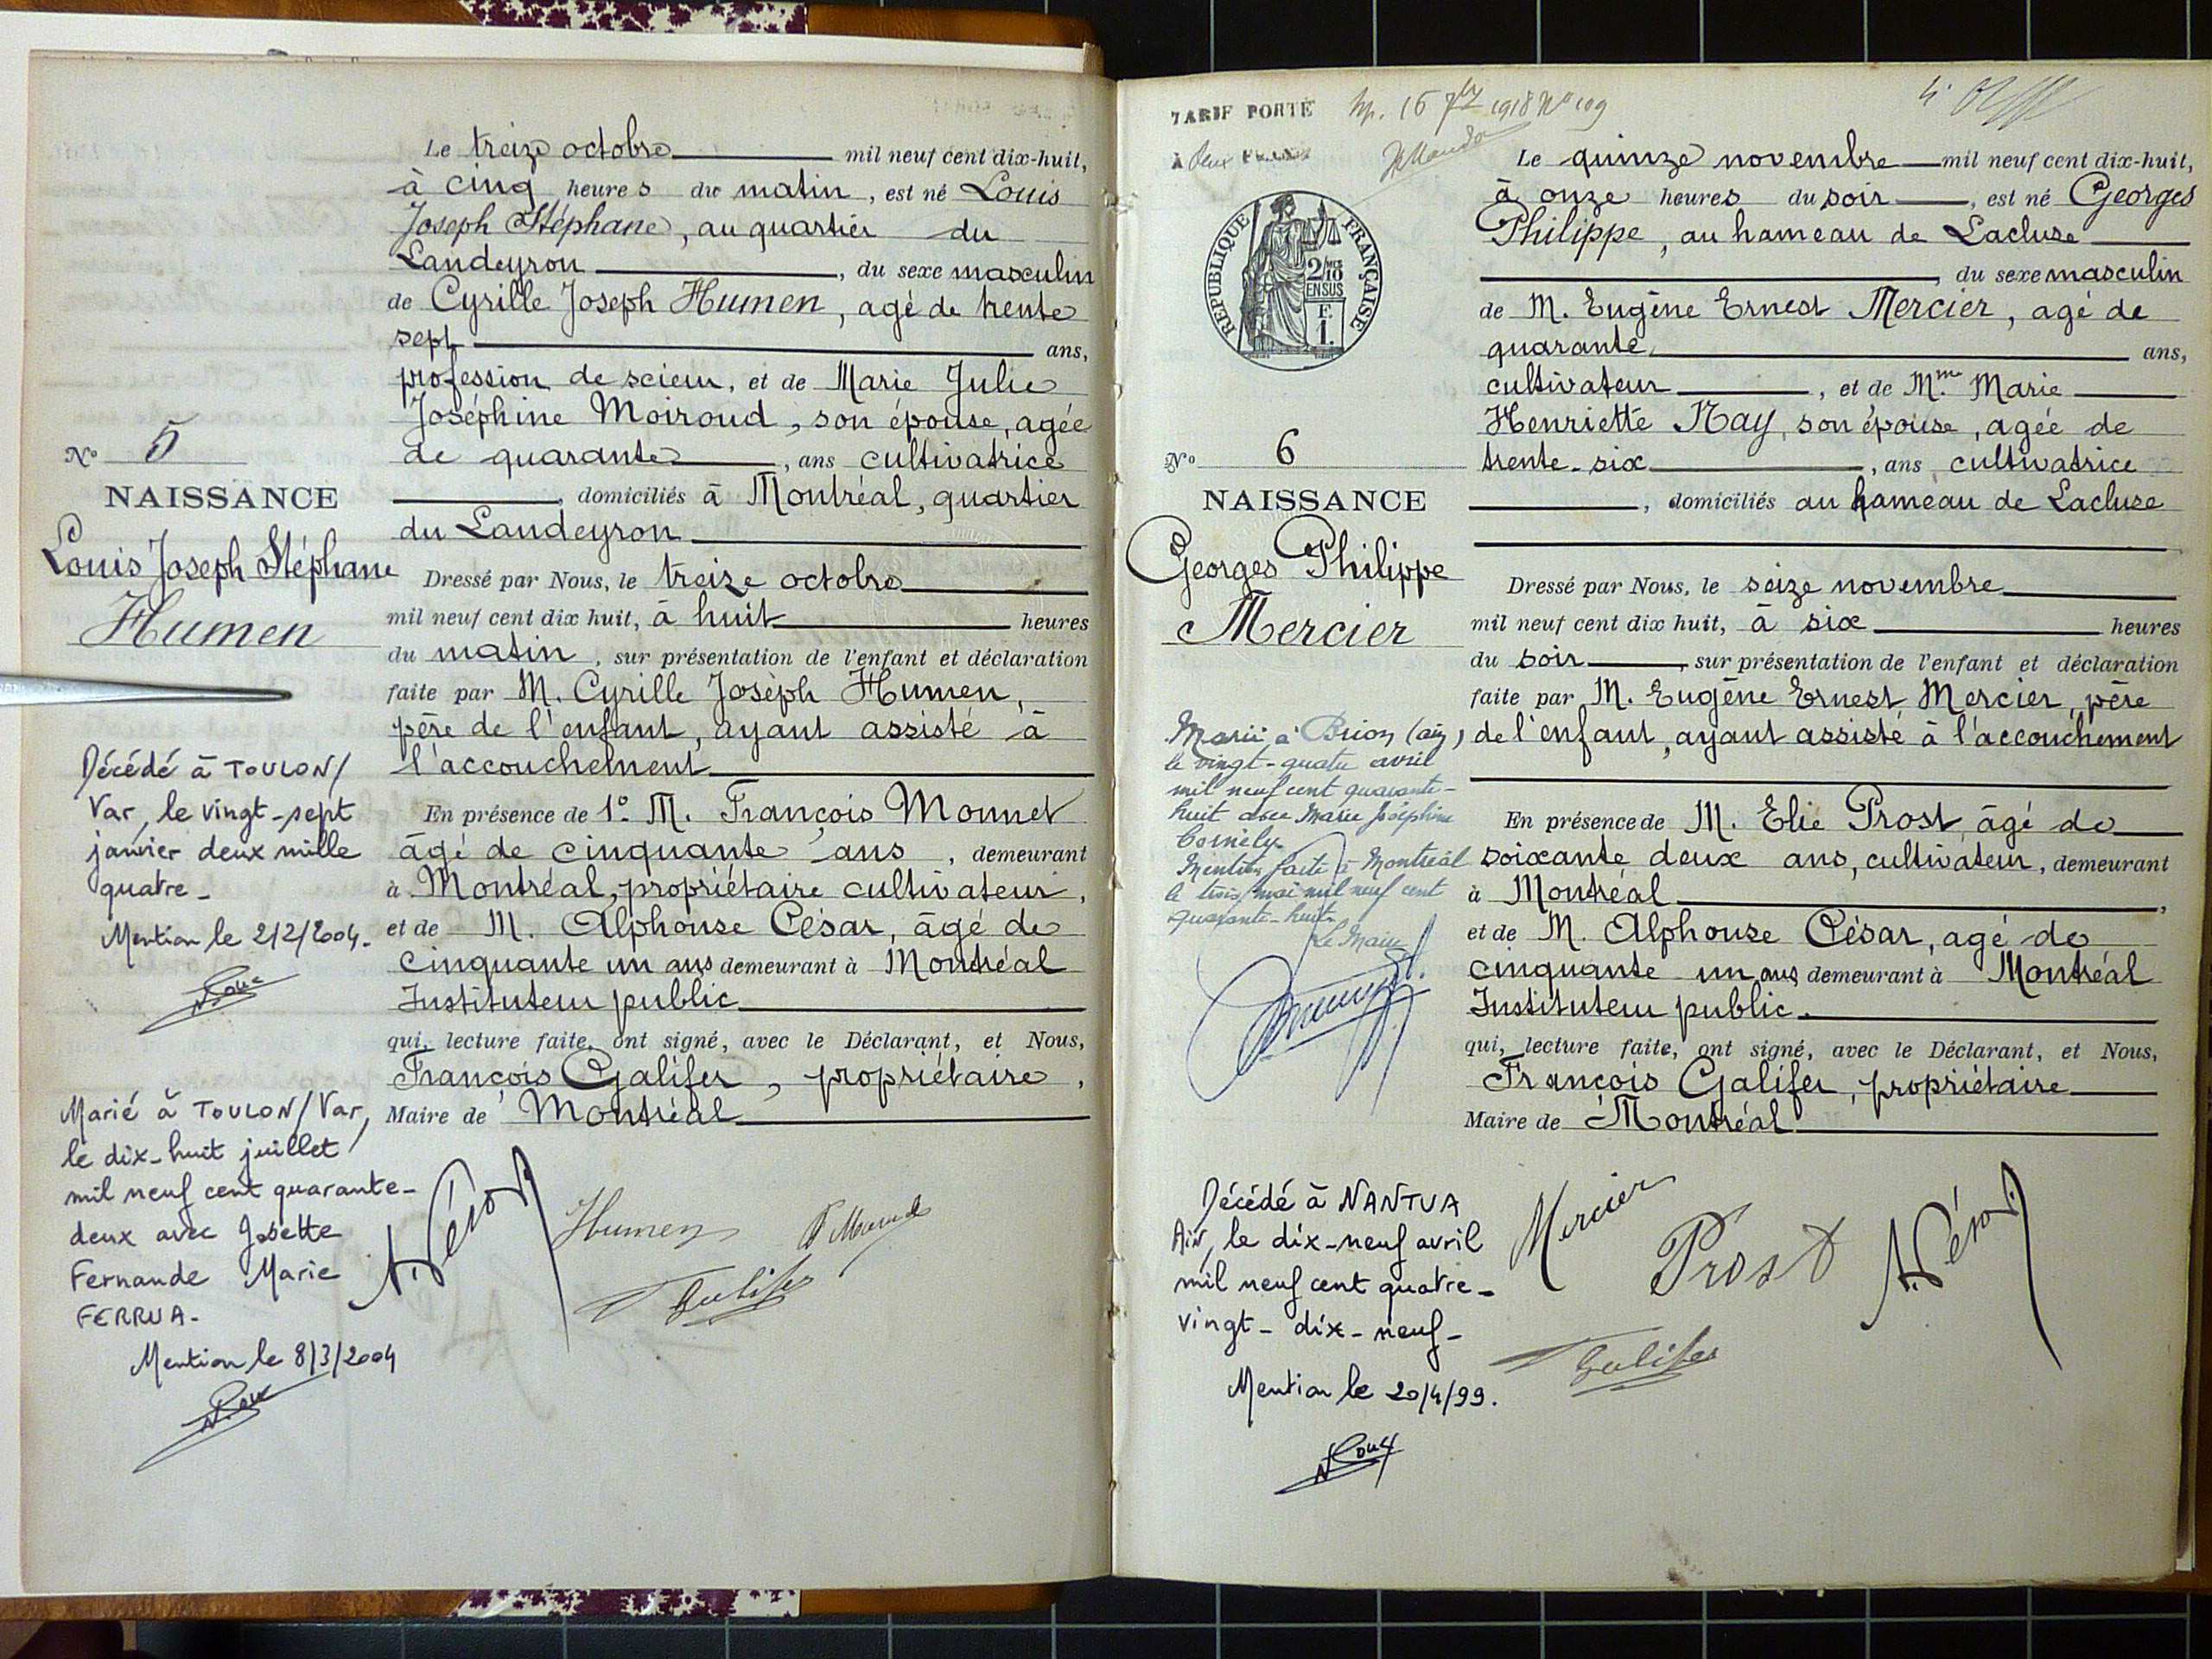 Le treize octobre mil neuf cent dix-huit,
à cinq heures du matin, est né Louis
Joseph Stéphane, au quartier du
Landeyron, du sexe masculin
de Cyrille Joseph Humen, agé de trente
sept ans,
profession de scieur, et de Marie Julie
Joséphine Moiroud, son épouse, agée
de quarante, ans cultivatrice
, domiciliés à Montréal, quartier
du Landeyron
Dressé par Nous, le treize octobre
mil neuf cent dix huit, à huit heures
du matin, sur présentation de l'enfant et déclaration
faite par M. Cyrille Joseph Humen,
père de l'enfant, ayant assisté à
l'accouchement
En présence de 1° M. François Monnet
âgé de cinquante ans, demeurant
à Montréal, propriétaire cultivateur,
et de M. Alphonse César, âgé de
cinquante un ans demeurant à Montréal
Instituteur public
qui, lecture faite, ont signé, avec le Déclarant, et Nous,
François Galifer, propriétaire,
Maire de Montréal
Humen
Galifer
N° 5
NAISSANCE
Louis Joseph Stéphane
Humen
Décédé à TOULON/
Var, le vingt-sept
janvier deux mille
quatre-
Mention le 2/2/2004.
Marié à TOULON/Var,
le dix-huit juillet
mil neuf cent quarante-
deux avec Josette
Fernande Marie
FERRUA-
Mention le 8/3/2004
TARIF PORTÉ
à deux FRANCS
1918 N° 109
RÉPUBLIQUE FRANÇAISE
2/10 MES
EN SUS
F.
1.
Le quinze novembre mil neuf cent dix-huit,
à onze heures du soir, est né Georges
Philippe, au hameau de Lacluse
, du sexe masculin
de M. Eugène Ernest Mercier, agé de
quarante, ans,
cultivateur, et de Mme Marie
Henriette Nay, son épouse, agée de
trente-six, ans cultivatrice
, domiciliés au hameau de Lacluse
Dressé par Nous, le seize novembre
mil neuf cent dix huit, à six heures
du soir, sur présentation de l'enfant et déclaration
faite par M. Eugène Ernest Mercier, père
de l'enfant, ayant assisté à l'accouchement
En présence de M. Elie Prost, âgé de
soixante deux ans, cultivateur, demeurant
à Montréal,
et de M. Alphonse César, agé de
cinquante un ans demeurant à Montréal
Instituteur public.
qui, lecture faite, ont signé, avec le Déclarant, et Nous,
François Galifer, propriétaire
Maire de Montréal
Mercier
Prost
Galifer
N° 6
NAISSANCE
Georges Philippe
Mercier
Marié à Brion (Ain)
le vingt-quatre avril
mil neuf cent quarante-
huit avec Marie Joséphine
Cornély.
Mention faite à Montréal
le trois mai mil neuf cent
quarante-huit.
Le Maire
Décédé à NANTUA
Ain, le dix-neuf avril
mil neuf cent quatre-
vingt-dix-neuf-
Mention le 20/4/99.